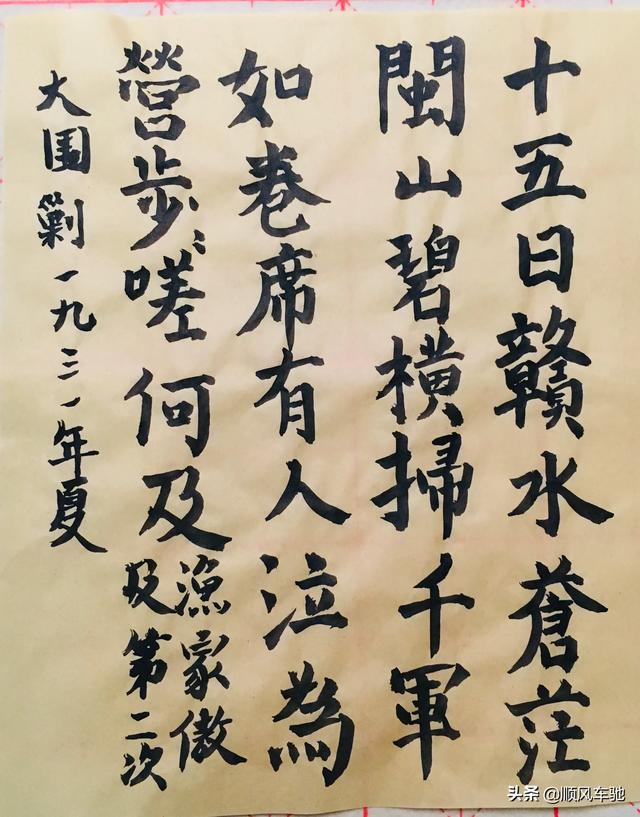 十五日贛水蒼茫
閩山碧橫掃千軍
如卷席有人泣為
營步〻嗟何及
漁家傲
及第二次
大圍剿一九三一年夏
头条 @顺风车驰